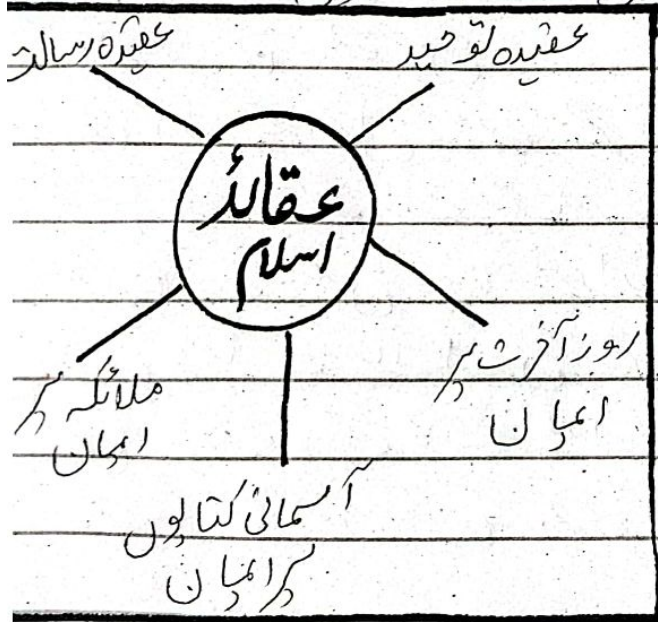 عقیدہ توحید
عقیدہ رسالت
عقائد
اسلام
روز آخرت پر
ایمان
ملائکہ پر
ایمان
آسمانی کتابوں
پر ایمان